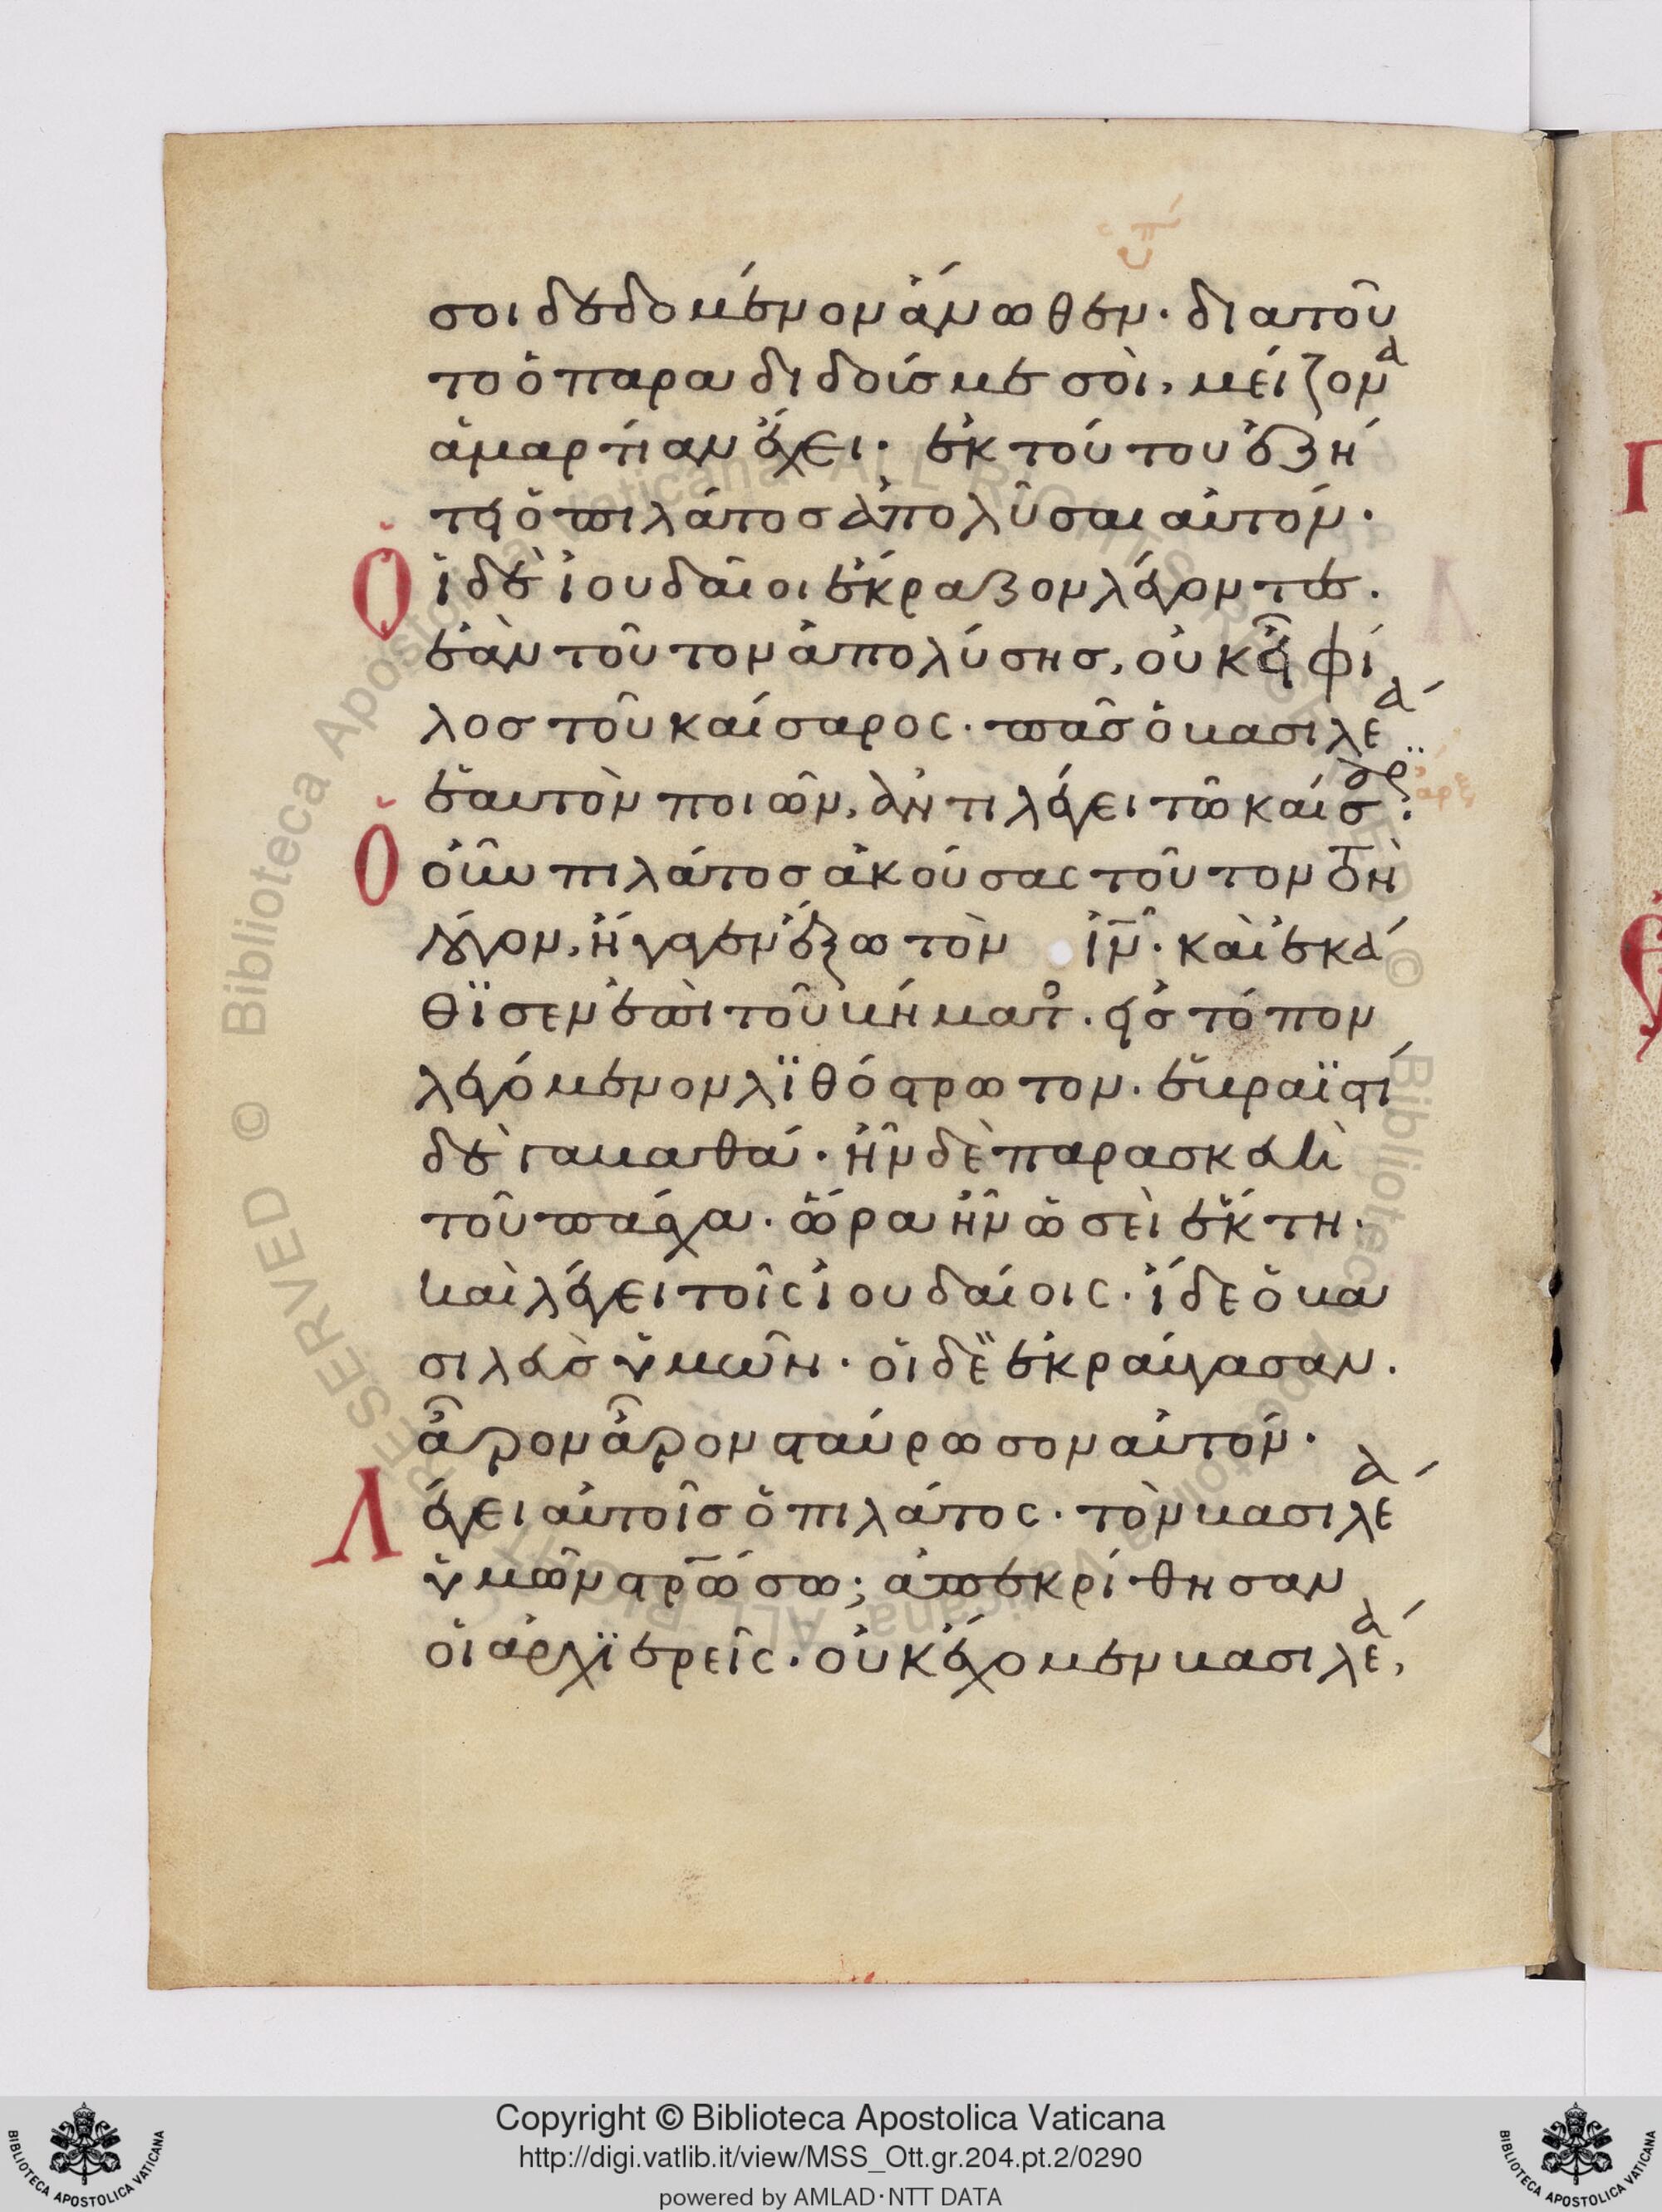 σοι δεδομένον ἄνωθεν· διατοῦ
το ὁ παραδιδούσ με σοὶ, μείζονα
ἁμαρτίαν ἔχει· ἐκ τούτου ἐζή
τει ὁ πιλάτοσ ἀπολῦσαι αὐτόν·
Οἱ δὲ ἰουδαῖοι ἔκραζον λέγοντεσ·
ἐὰν τοῦτον ἀπολύσησ, οὐκ εἶ φί
λοσ τοῦ καίσαρος· πᾶσ ὁ βασιλέα
ἑαυτὸν ποιῶν, ἀντιλέγει τῶ καίσαρϊ:
Ὁ οὖν πιλάτοσ ἀκούσας τοῦτον τὸν
λόγον, ἤγαγεν ἔξω τὸν ἰν· καὶ ἐκά
θϊσεν ἐπὶ τοῦ βήματος· εἰσ τόπον
λεγόμενον λϊθόστρωτον· ἑβραϊστί
δὲ γαββαθά· ἦν δὲ παρασκευὴ
τοῦ πάσχα· ὥρα ἦν ὡσεὶ ἕκτη·
καὶ λέγει τοῖς ἰουδαίοις· ἴδε ὁ βα
σιλεὺσ ὑμῶν· οἱ δὲ ἐκραύγασαν·
ἆρον ἆρον σταύρωσον αὐτόν·
Λέγει αὐτοῖσ ὁ πιλάτος· τὸν βασιλέα
ὑμῶν στρώσω; ἀπεκρίθησαν
οἱ ἀρχϊερεῖς· οὐκ ἔχομεν βασιλέα,
Copyright © Biblioteca Apostolica Vaticana
http://digi.vatlib.it/view/MSS_Ott.gr.204.pt.2/0290
powered by AMLAD·NTT DATA
BIBLIOTECA APOSTOLICA VATICANA
BIBLIOTECA APOSTOLICA VATICANA